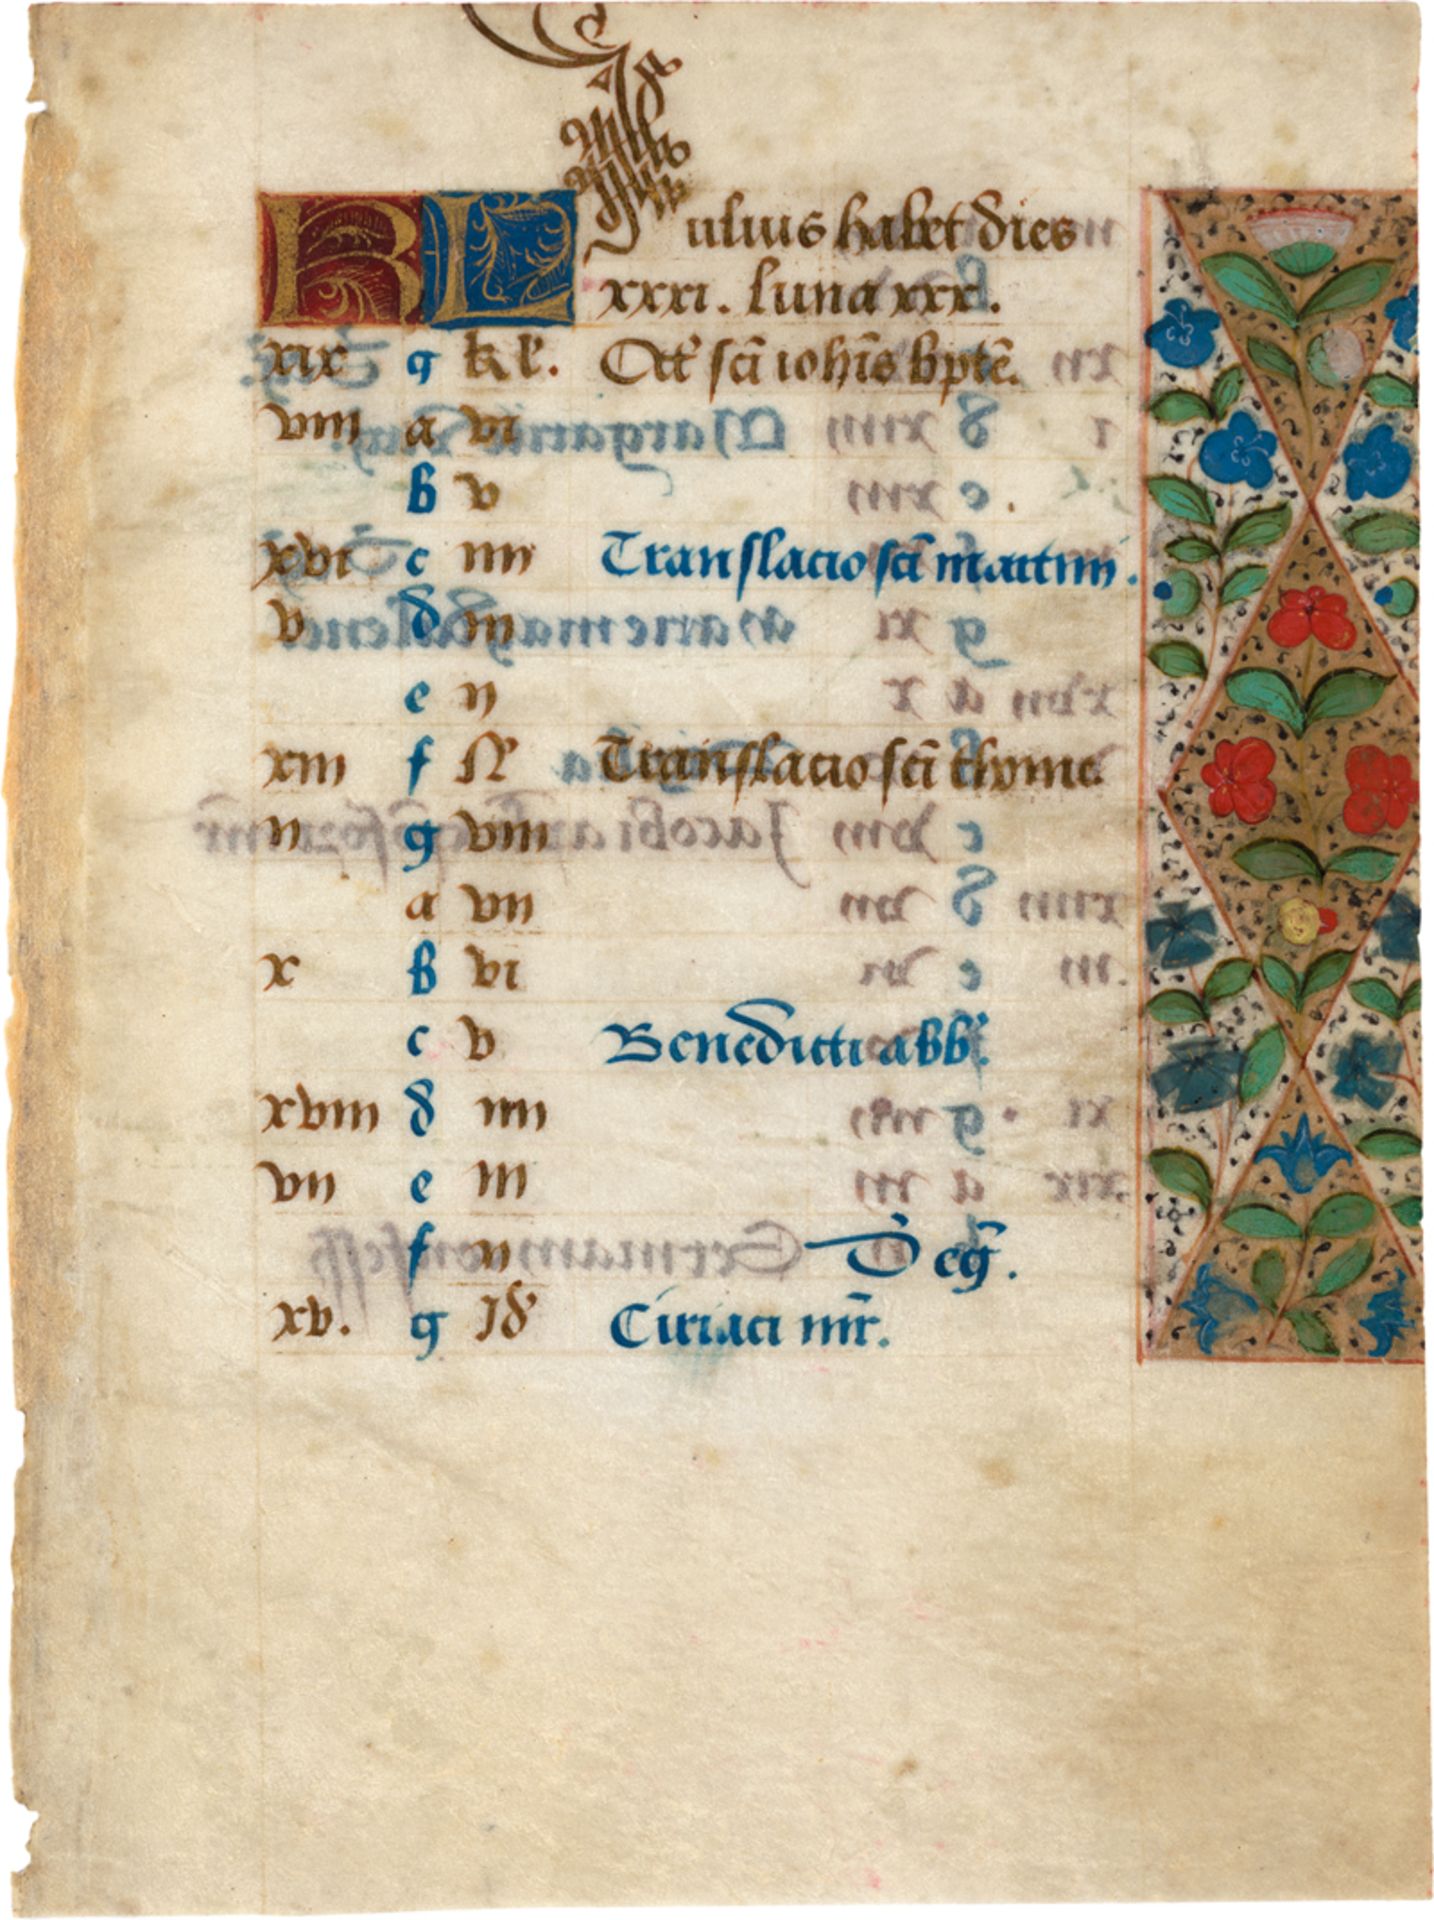 KL Julius habet dies
xxxi. luna xxx.
xix g kl'. Oct' sci iohis bpte.
viii a vi
b v
xvi c iiii Translacio sci martini.
v d iii
e ii
xiii f N' Translacio sci thome
ii g viii
a vii
x b vi
c v Benedicti abb'.
xviii d iiii
vii e iii
f ii Deg.
xv. g Id' Ciriaci mr.